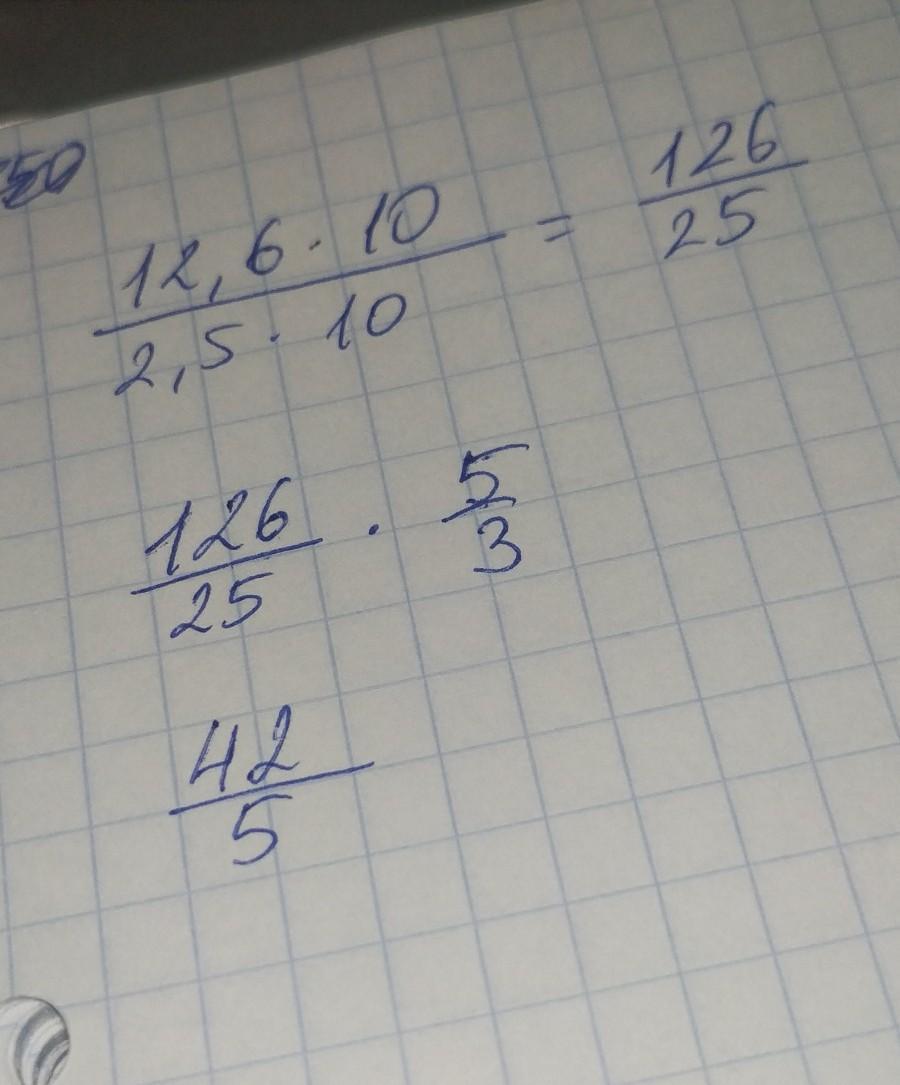 50
12,6 · 10 / 2,5 · 10 = 126 / 25
126 / 25 · 5 / 3
42 / 5